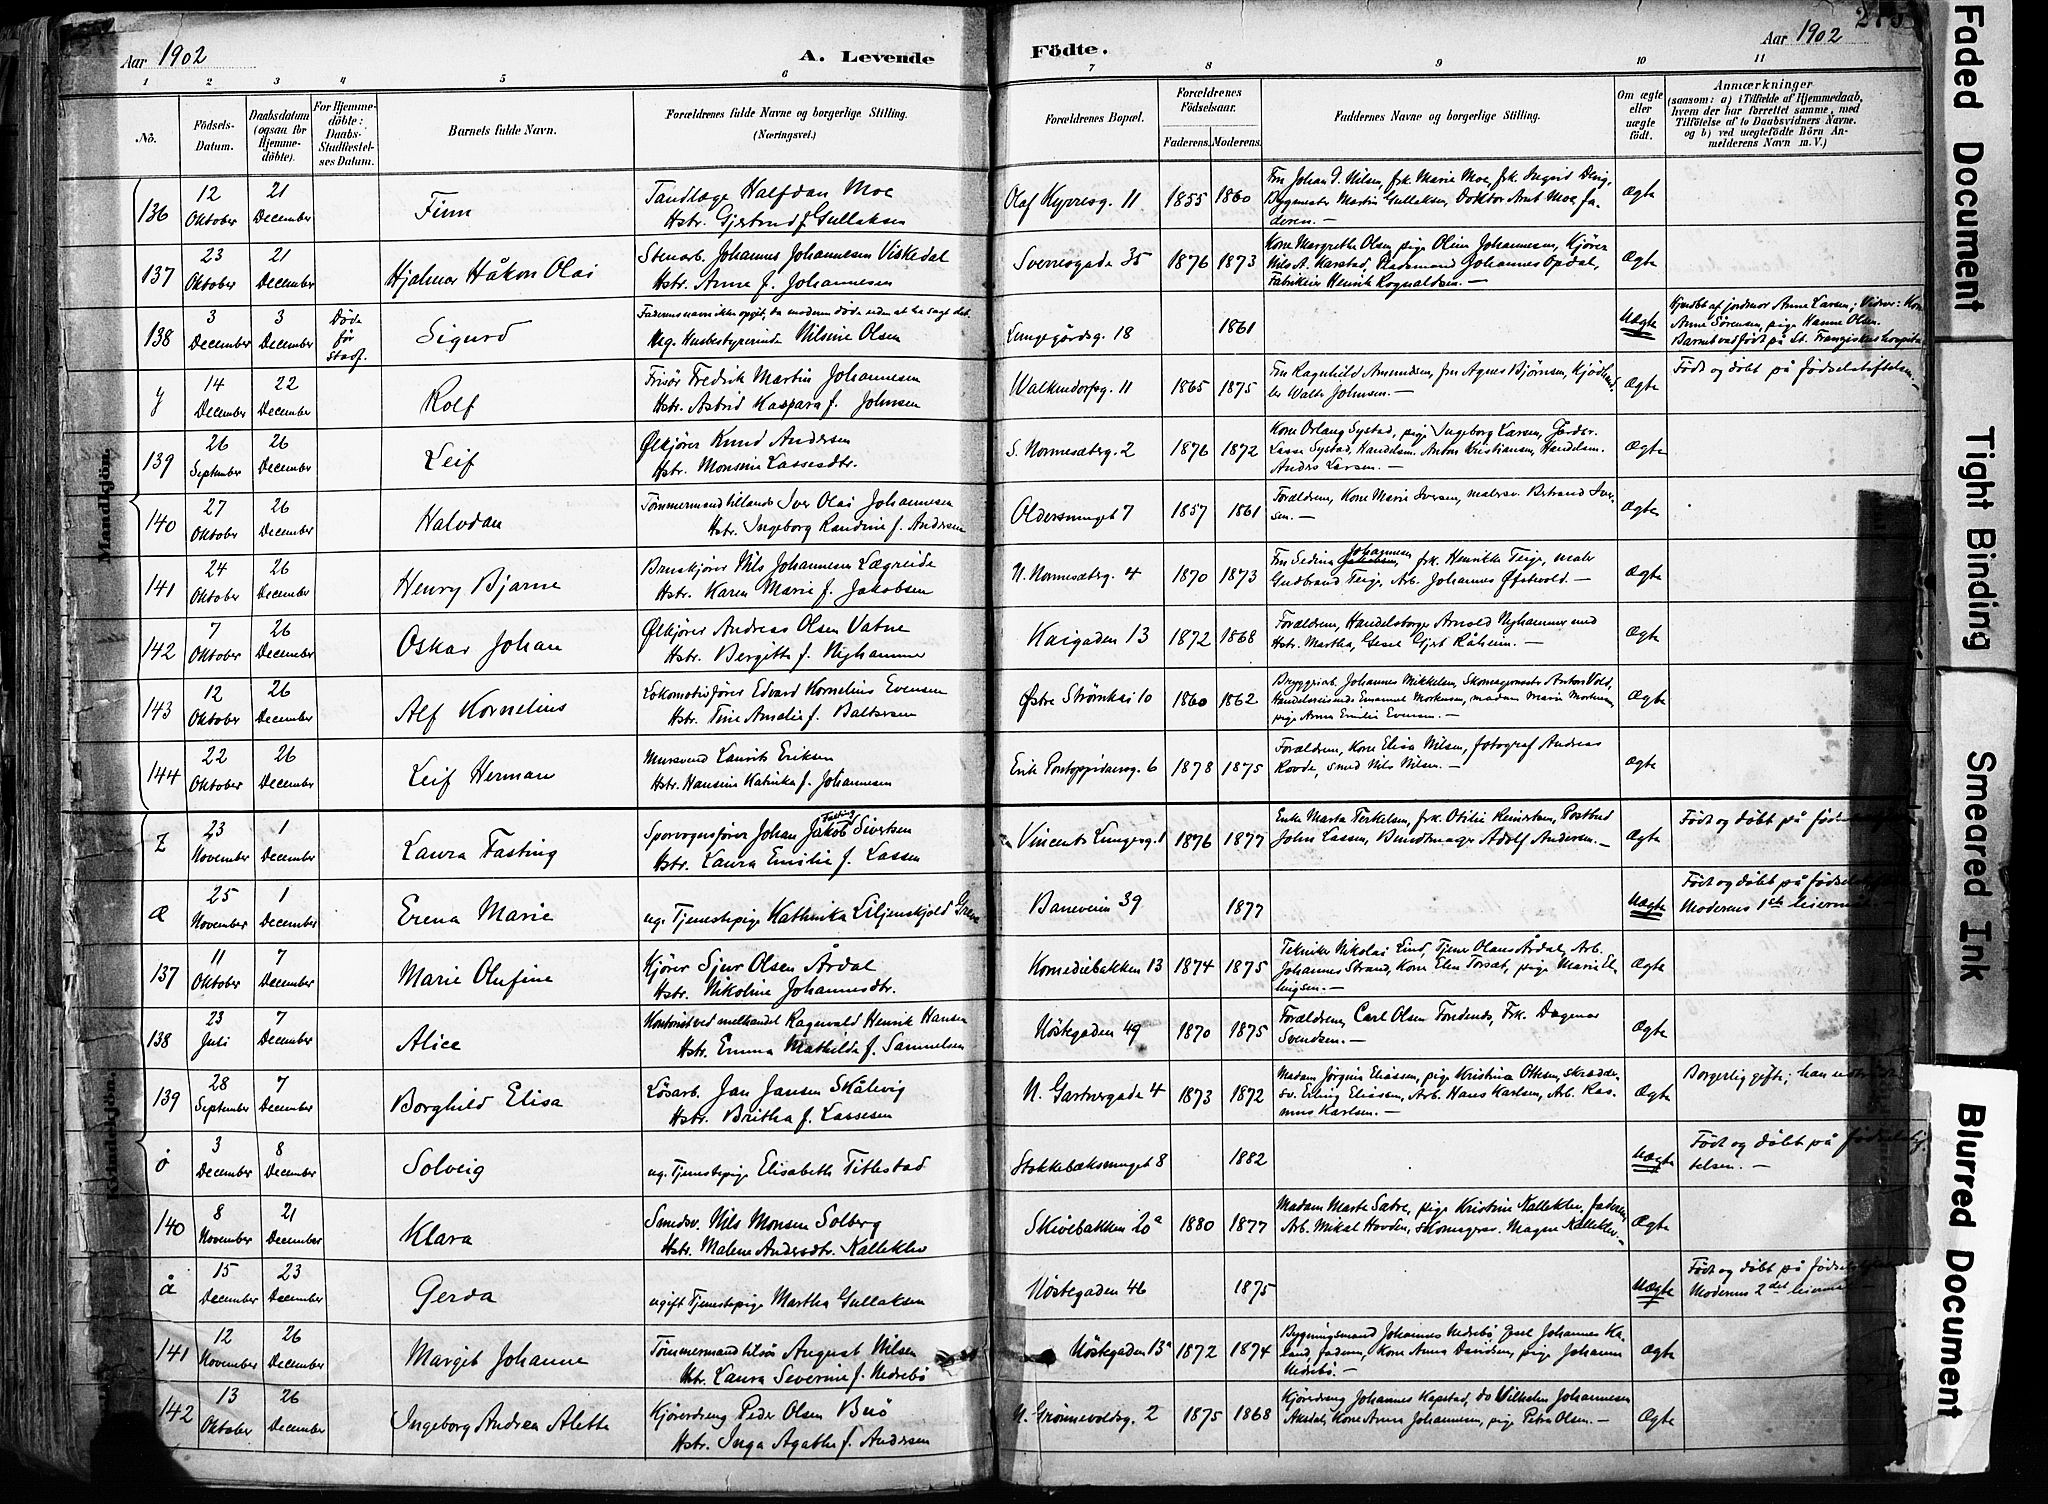 Aar 1902
A. Levende
Födte.
Aar 1902
1 2 3 4 5 6 7 8 9 10 11
No.
Födsels-Datum.
Daabsdatum (ogsaa for Hjemme-döbte).
For Hjemme-döbte: Daabs-Stadfæstel-ses Datum.
Barnets fulde Navn.
Forældrenes fulde Navne og borgerlige Stilling.
(Næringsvei.)
Forældrenes Bopæl.
Forældrenes Födselsaar.
Faderens. Moderens.
Faddernes Navne og borgerlige Stilling.
Om ægte eller uægte födt.
Anmærkninger
(saasom: a) i Tilfælde af Hjemmedaab, hvem der har forrettet samme, med Tilföielse af to Daabsvidners Navne. og b) ved uægtefödte Börn An-melderens Navn m. V.)
Mandkjön.
136 12 Oktober 21 December Finn
Tandlæge Halfdan Moe
Hstr. Gjertrud f. Gullaksen
Olaf Kyrresg. 11 1855 1860
Fru Johan Nilsen, frk. Marie Moe, frk. Ingrid
Bygmester Martin Gullaksen, Doktor Arnt Moe fa-
deren. —
Ægte
137 23 Oktober 21 December Hjalmar Håkon Olai
Stenarb. Johannes Johannesen Viskedal
Hstr. Anne f. Johannesen
Sverresgade 35 1876 1873
Kone Margrethe Olsen, pige Oline Johannesen, Kjører
Nils A. Karstad, Johannes Opdal,
Fabrikeier Henrik Rognaldsen. —
Ægte
138 3 December 3 December Døde før stadf. Sigurd
Faderens navn ikke opgit, da moderen døde uden at ha sagt det.
Ug. Husbestyrerinde Nilsine Olsen
Lungegårdsg. 18 1861
Uægte
Hjdøbt af jordmor Anne Larsen; Vidner: Kone
Anne Sørensen, pige Hanne Olsen.
Barnet var født på St. Franziskus hospital
y 14 December 22 December Rolf
Frisør Fredrik Martin Johannesen
Hstr. Astrid Kaspara f. Johnsen
Walkendorfsg. 11 1865 1875
Fru Ragnhild Amundsen, fru Agnes Bjørnsen,
Walter Johnsen. —
Ægte
Født og døbt på fødselsstiftelsen. —
139 26 September 26 December Leif
Ølkjører Knud Andersen
Hstr. Monsine Lassesdtr.
S. Nornesæterg. 2 1876 1872
Kone Orlaug Systad, pige Ingeborg Larsen, Gårdbr.
Lasse Systad, Handelsm. Anton Kristiansen, Handelsm.
Anders Larsen. —
Ægte
140 27 Oktober 26 December Halvdan
Tømmermand tillands Iver Olai Johannesen
Hstr. Ingeborg Randine f. Andersen
Oldersmuget 7 1857 1861
Forældrene, Kone Marie Iversen, malersv. Bertrand Iver-
sen. —
Ægte
141 24 Oktober 26 December Henry Bjarne
Bruskjører Nils Johannesen Lægreide
Hstr. Karen Marie f. Jakobsen
N. Nornesæterg. 4 1870 1873
Fru Sedina Johannesen, frk. Henrikke Teige, maler
Gudbrand Teige, Arb. Johannes Øfstvold. —
Ægte
142 7 Oktober 26 December Oskar Johan
Ølkjører Andreas Olsen Vatne
Hstr. Bergitte f. Nyhammer
Kaigaden 13 1872 1868
Forældrene, Handelsborger Arnold Nyhammer med
Hstr. Martha, Gesel Gjert Råheim. —
Ægte
143 12 Oktober 26 December Alf Kornelius
Lokomotivfører Edvard Kornelius Evensen
Hstr. Tine Amalie f. Baltersen
Østre Strømkai 10 1860 1862
Bryggeriarb. Johannes Mikkelsen, Skomagermester Anton Vold,
Handelsreisende Emanuel Mortensen, madam Marie Mortensen,
pige Anna Emilie Evensen. —
Ægte
144 22 Oktober 26 December Leif Herman
Mursvend Laurits Eriksen
Hstr. Hansine Katinka f. Johannesen
Erik Pontoppidansg. 6 1878 1875
Forældrene, Kone Elisa Nilsen, fotograf Andreas
Rovde, smed Nils Nilsen. —
Ægte
Kvindekjön.
Z 23 November 1 December Laura Fasting
Sporvognsfører Johan Jakob Fasting Sivertsen
Hstr. Laura Emilie f. Lassen
Vincents Lungesg. 1 1876 1877
Enke Marta Torkelsen, frk. Otilie Reinertsen, Postbud
John Lassen, Bundtmager Adolf Andersen. —
Ægte
Født og døbt på
æ 25 November 1 December Erena Marie
ug. Tjenestepige Kathinka Liljenskjold
Baneveien 39 1877
Uægte
Født og døbt på
Moderens 1ste leiermål
137 11 Oktober 7 December Marie Olufine
Kjører Sjur Olsen Årdal
Hstr. Nikoline Johannesdtr.
Komediebakken 13 1874 1875
Tekniker Nikolai Lind, Tjener Olaus Årdal, Arb.
Johannes Strand, Kone Elen Torsæt, pige Marie El-
lingsen. —
Ægte
138 23 Juli 7 December Alice
Kontorist ved melhandel Ragnvald Henrik Hansen
Hstr. Emma Mathilde f. Samuelsen
Nøstegaden 49 1870 1875
Forældrene, Carl Olsen, Frk. Dagmar
Svendsen. —
Ægte
139 28 September 7 December Borghild Elisa
Løsarb. Jan Jansen Skålevig
Hstr. Britha f. Lassesen
N. Gartnergade 4 1873 1872
Madam Jørgine Eliassen, pige Kristina Ottesen, skrædder-
sv. Erling Eliassen, Arb. Hans Karlsen, Arb. Ras-
mus Karlsen. —
Ægte
Borgerlig gifte; han
ø 3 December 8 December Solveig
ug. Tjenestepige Elisabeth Titlestad
Stokkebæksmuget 8 1882
Uægte
Født og døbt på
telsen. —
140 8 November 21 December Klara
Smedsv. Nils Monsen Solberg
Hstr. Malene Andersdtr. Kalleklev
Skivebakken 20a 1880 1877
Madam Marte Sætre, pige Kristine Kalleklev, faderen,
Arb. Mikal Hovden, skomagersv. Magne Kalleklev. —
Ægte
å 15 December 23 December Gerda
ugift Tjenestepige Martha Gullaksen
Nøstegaden 46 1875
Uægte
Født og døbt på
Moderens 2det leiermål
141 12 November 26 December Margit Johanne
Tømmermand tilsøs August Nilsen
Hstr. Laura Severine f. Nedrebø
Nøstegaden 13a 1872 1874
Bygningsmand Johannes Nedrebø, Gesel Johannes Ka-
land, faderen, Kone Anna Davidsen, pige Johanne
Nedrebø. —
Ægte
142 13 Oktober 26 December Ingeborg Andrea Alette
Kjøredreng Peder Olsen Buø
Hstr. Inga Agathe f. Andersen
N. Grønnevoldsg. 2 1875 1868
Kjøredreng Johannes Kapstad, do Wilhelm Johannesen
Akedal, Kone Anna Johannesen, pige Petra Olsen. —
Ægte
Faded Document
Tight Binding
Smeared Ink
Blurred Document